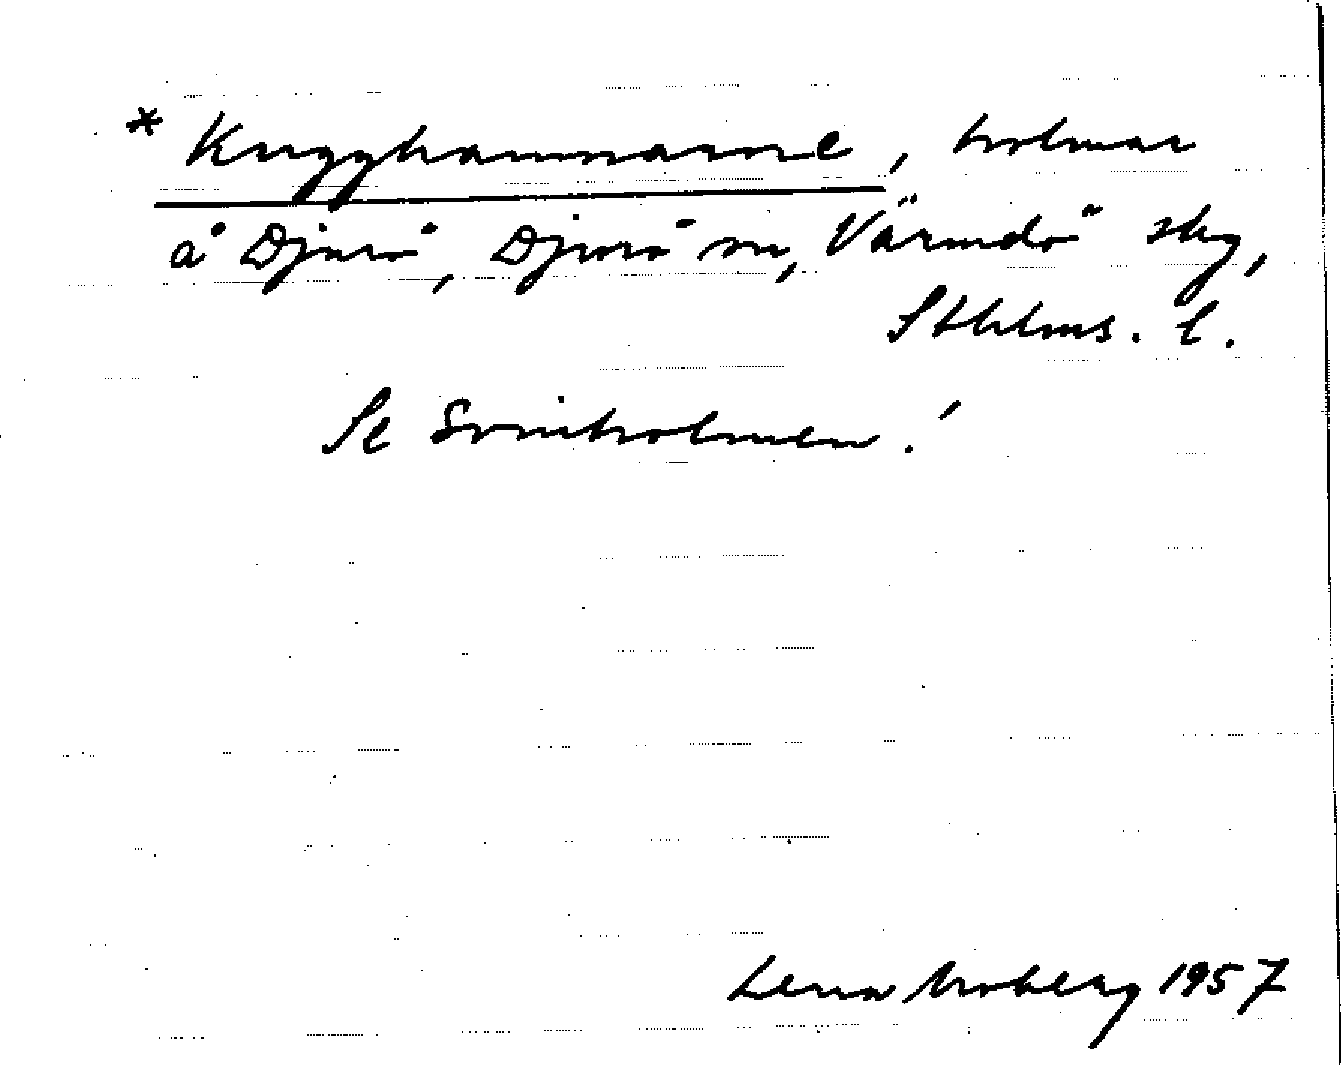 * Knygghamnarne, holmar
å Djurö, Djurö sn, Värmdö skg,
Sthlms. l.
Se Svinholmen!
Lena Moberg 1957